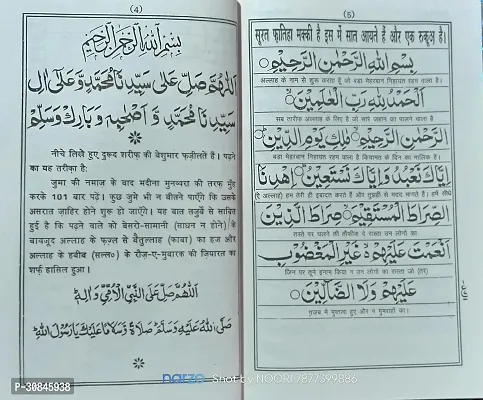 (4)
بِسْمِ اللهِ الرَّحْمٰنِ الرَّحِيْمِ
اَللّٰهُمَّ صَلِّ عَلٰى سَيِّدِنَا مُحَمَّدٍ وَّ عَلٰى اٰلِ
سَيِّدِنَا مُحَمَّدٍ وَّ اَصْحَابِهٖ وَ بَارِكْ وَسَلِّمْ
नीचे लिखे हुए दुरूद शरीफ़ की बेशुमार फज़ीलतें हैं। पढ़ने
का यह तरीक़ा है:
जुमा की नमाज़ के बाद मदीना मुनव्वरा की तरफ मुँह
करके 101 बार पढ़ें। कुछ जुमे भी न बीतने पाएँगे कि उसके
असरात ज़ाहिर होने शुरू हो जाएँगे। यह बात तजुर्बे से साबित
हुई है कि पढ़ने वाले को बेसरो-सामानी (साधन न होने) के
बावजूद अल्लाह के फज़्ल से बैतुल्लाह (काबा) का हज और
अल्लाह के हबीब (सल्ल०) के रौज़-ए-मुबारक की ज़ियारत का
शर्फ़ हासिल हुआ।
اَللّٰهُمَّ صَلِّ عَلَى النَّبِيِّ الْاُمِّيِّ وَاٰلِهٖ
صَلَّى اللهُ عَلَيْهِ وَسَلَّمَ صَلَاةً وَّسَلَامًا عَلَيْكَ يَا رَسُوْلَ اللهِ
(5)
सूरत फ़ातिहा मक्की है इस में सात आयतें हैं और एक रुकूअ है।
بِسْمِ اللهِ الرَّحْمٰنِ الرَّحِيْمِ
अल्लाह के नाम से शुरू करता हूँ जो बड़ा मेहरबान निहायत रहम वाला है।
اَلْحَمْدُ لِلّٰهِ رَبِّ الْعٰلَمِيْنَ
सब तारीफ अल्लाह के लिए है जो सारे जहान का पालने वाला है
الرَّحْمٰنِ الرَّحِيْمِ مٰلِكِ يَوْمِ الدِّيْنِ
बड़ा मेहरबान निहायत रहम वाला है कियामत के दिन का मालिक है।
اِيَّاكَ نَعْبُدُ وَاِيَّاكَ نَسْتَعِيْنُ اِهْدِنَا
(ऐ अल्लाह) हम तेरी ही इबादत करते हैं और तुझही से मदद मांगते हैं। हमें सीधे
الصِّرَاطَ الْمُسْتَقِيْمَ صِرَاطَ الَّذِيْنَ
रास्ते पर चलने की तौफीक दे रास्ता उन लोगों का
اَنْعَمْتَ عَلَيْهِمْ غَيْرِ الْمَغْضُوْبِ
जिन पर तूने इनाम किया न उन लोगों का रास्ता जो (तेरे)
عَلَيْهِمْ وَلَا الضَّآلِّيْنَ
ग़ज़ब में मुब्तला हुए और न गुमराहों का।
narzo Shot by NOORI 7877399886
P-30845938